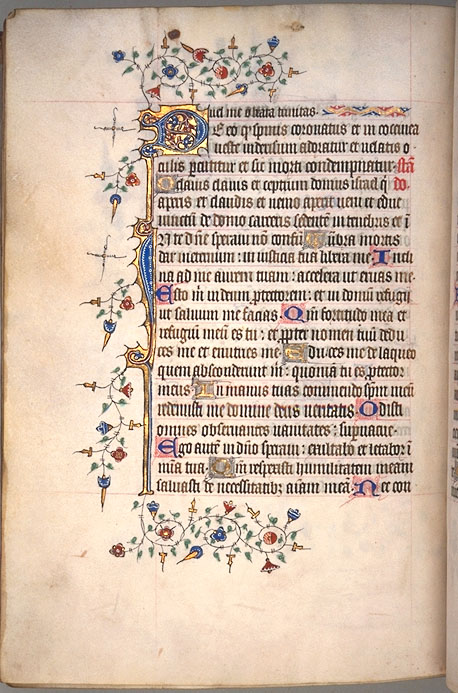 uel me o beata trinitas.
De eo q̄ spinis coronatus et in coccinea
ueste inderisum adoratur et uelatis o
culis percutitur et sic morti condempnatur.
O clauis dauid et sceptrum domus israel q̄
aperis et claudis et nemo aperit ueni et educ
uinctū de domo carceris sedentē in tenebris et ī
N te dn̄e speraui nō confū umbra mortis
dar in eternum: in iusticia tua libera me. Incli
na ad me aurem tuam: accelera ut eruas me.
Esto m̄ in deum ꝓtectorem: et in domū refugij
ut saluum me facias. Qm̄ fortitudo mea et
refugium meū es tu: et ꝓpter nomen tuū dedu
ces me et enutries me. Educes me de laqueo
quem absconderunt m̄: quoniā tu es ꝓtector
meus. In manus tuas commendo sp̄m meū
redemisti me domine deus ueritatis. Odisti
omnes obseruantes uanitates: suꝑuacue.
Ego autē in dn̄o speraui: exultabo et letabor ī
mīa tua. Qm̄ respexisti humilitatem meam
saluasti de necessitatibꝫ aīam meā. Nec con